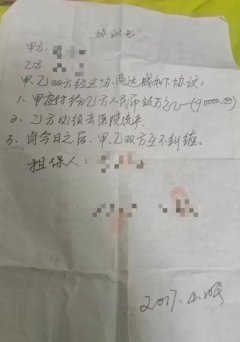 协议书
甲方:
乙方:
甲、乙双方经过协商达成如下协议:
1、甲方付给乙方人民币玖万
2、乙方必须去医院流产
3、自今日之后,甲、乙双方互不纠缠。
担保人:
2017.